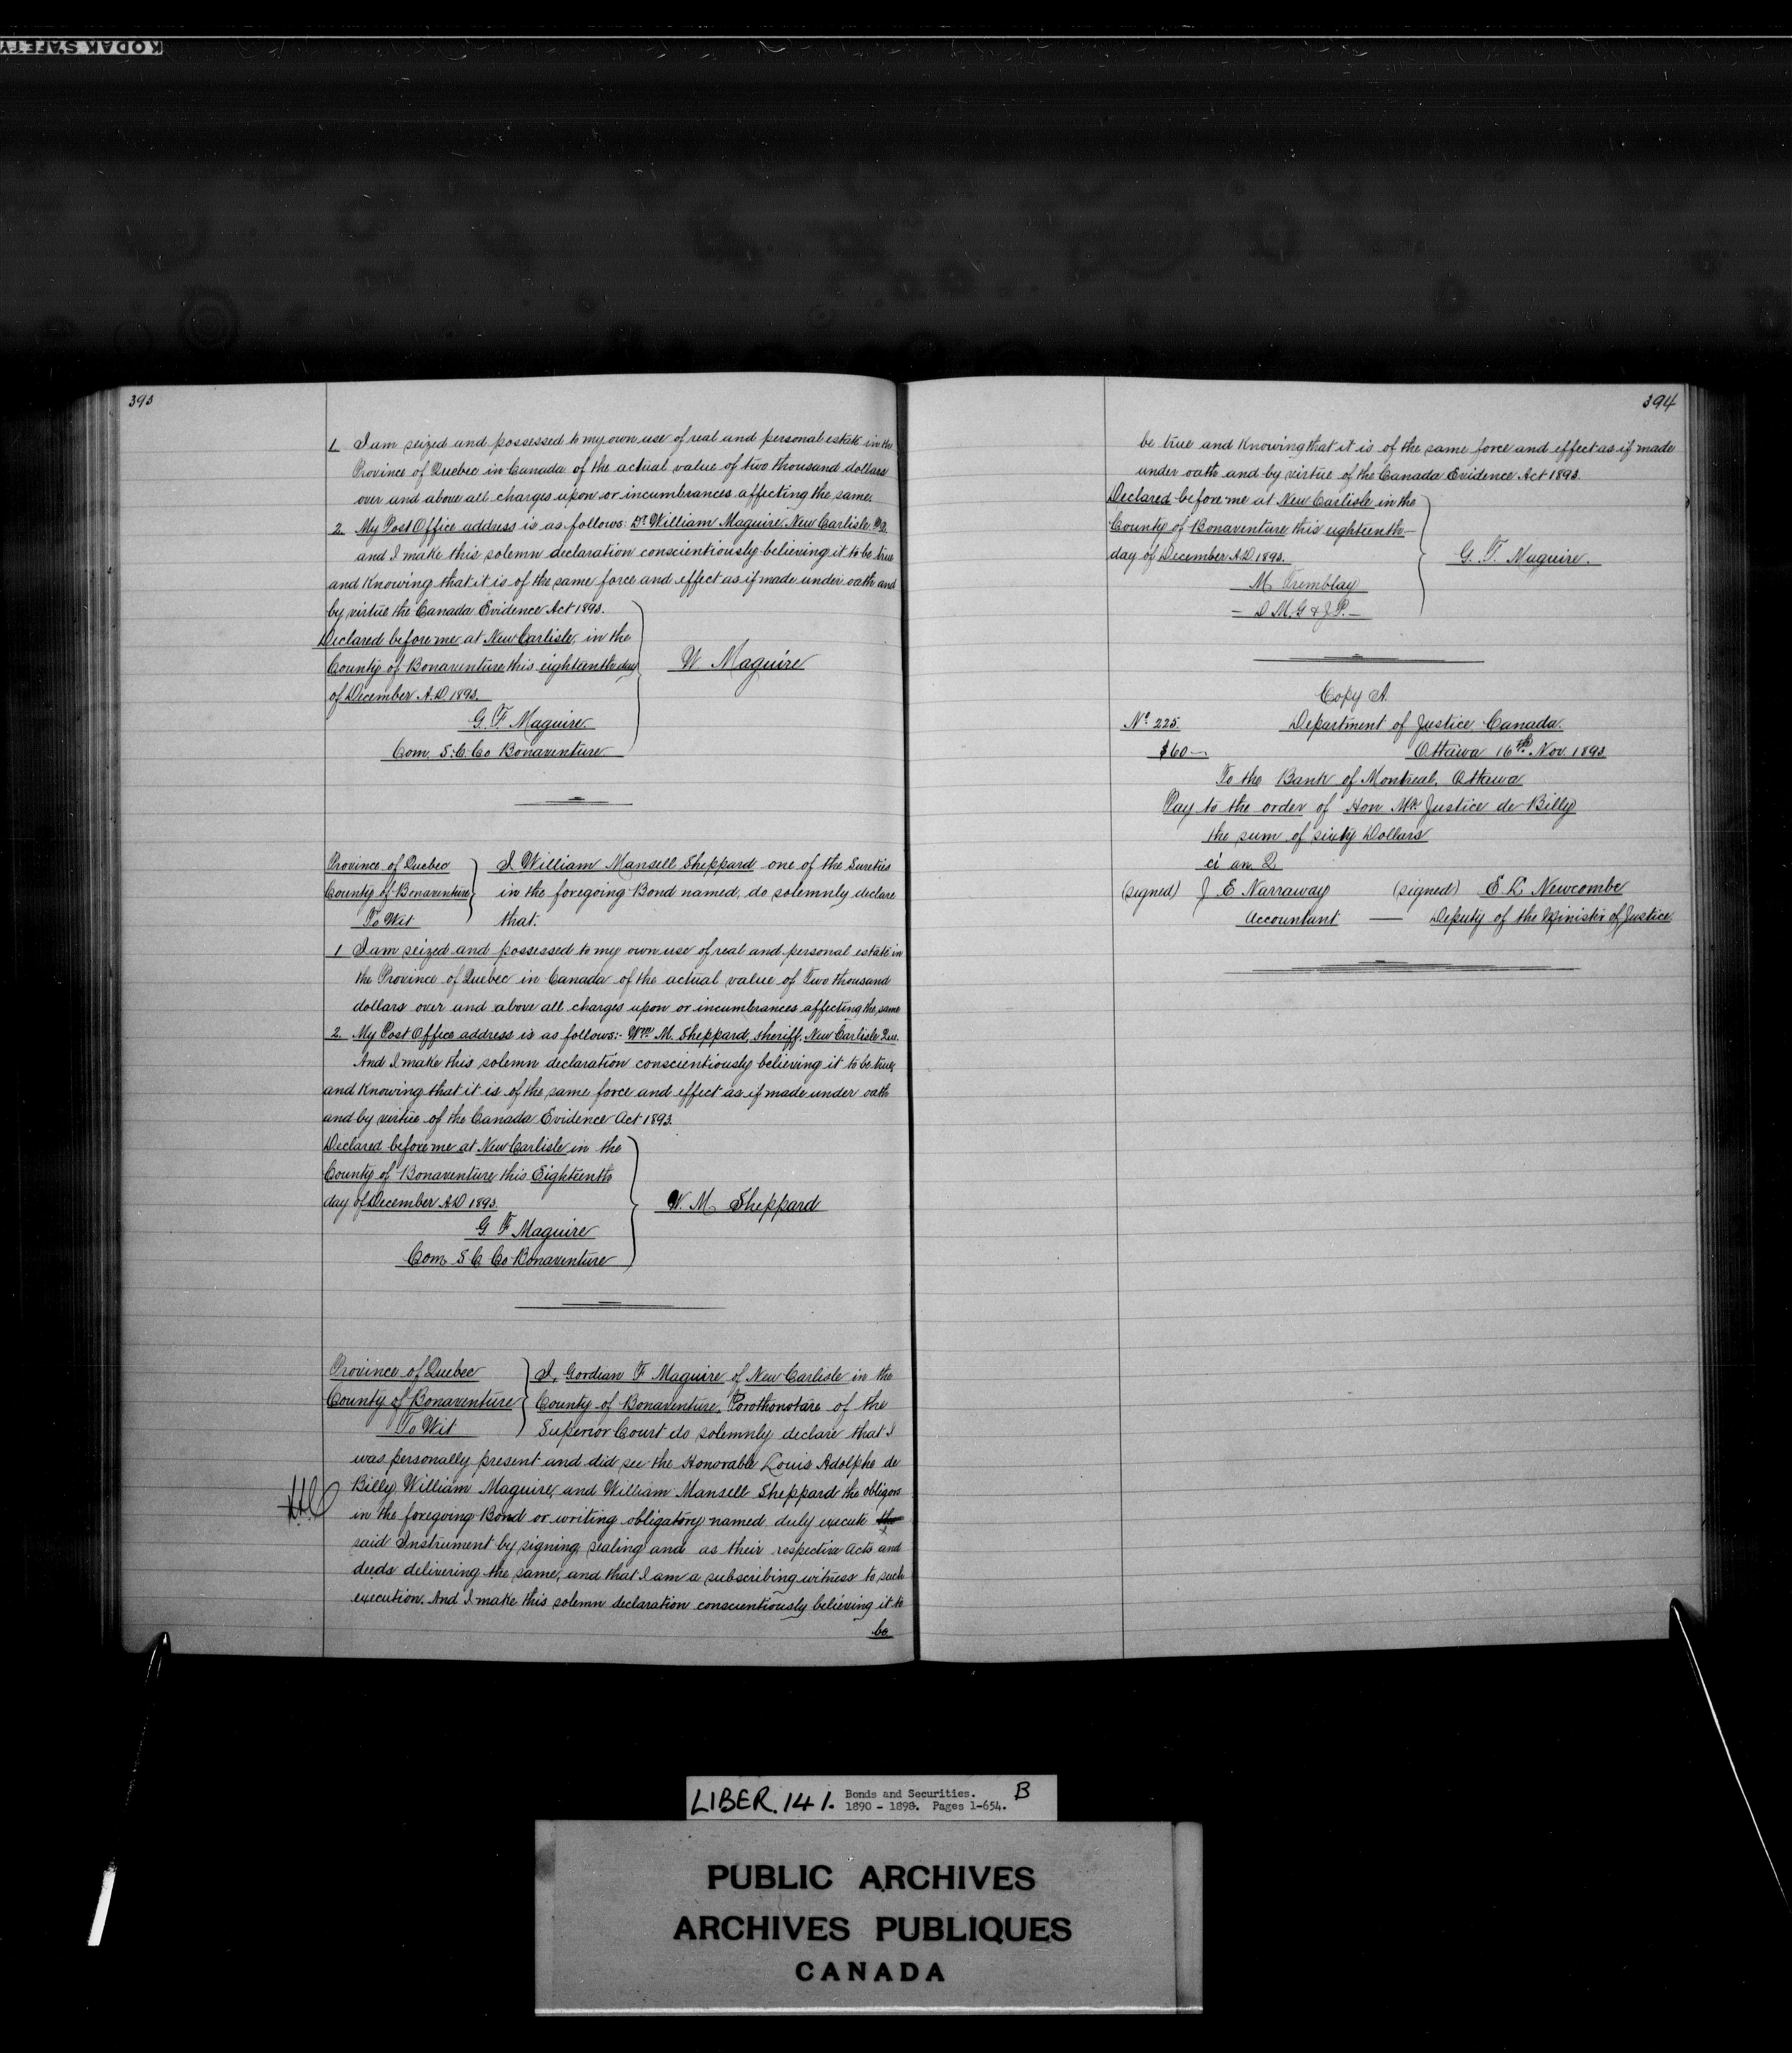 KODAK SAFETY
393
1. I am seized and possessed to my own use of real and personal estate in the
Province of Quebec in Canada of the actual value of two thousand dollars
over and above all charges upon or incumbrances affecting the same.
2. My Post Office address is as follows: Dr. William Maguire New Carlisle
and I make this solemn declaration conscientiously believing it to be true
and Knowing that it is of the same force and effect as if made under oath and
by virtue the Canada Evidence Act 1893.
Declared before me at New Carlisle in the
County of Bonaventure this eighteenth day
of December A.D. 1893.
W Maguire
G. F. Maguire
Com. S. C. Co Bonaventure
Province of Quebec
County of Bonaventure
To Wit
I William Mansell Sheppard one of the Sureties
in the foregoing Bond named, do solemnly declare
that.
1 I am seized and possessed to my own use of real and personal estate in
the Province of Quebec in Canada of the actual value of Two thousand
dollars over and above all charges upon or incumbrances affecting the same
2. My Post Office address is as follows:- Wm M. Sheppard, Sheriff, New Carlisle Que.
And I make this solemn declaration conscientiously believing it to be true,
and Knowing that it is of the same force and effect as if made under oath
and by virtue of the Canada Evidence Act 1893.
Declared before me at New Carlisle in the
County of Bonaventure this Eighteenth
day of December A.D 1893.
W. M. Sheppard
G. F Maguire
Com S C Co Bonaventure
Province of Quebec
County of Bonaventure
To Wit
I, Gordian F Maguire of New Carlisle in the
County of Bonaventure, Porothonotare of the
Superior Court do solemnly declare that I
was personally present and did see the Honorable Louis Adolphe de
Billy, William Maguire, and William Mansell Sheppard the obligors
in the foregoing Bond or writing obligatory named duly execute the
said Instrument by signing sealing and as their respective Acts and
deeds delivering the same, and that I am a subscribing witness to such
execution. And I make this solemn declaration conscientiously believing it to
be
394
be true and Knowing that it is of the same force and effect as if made
under oath and by virtue of the Canada Evidence Act 1893.
Declared before me at New Carlisle in the
County of Bonaventure this eighteenth
day of December A.D 1893.
G. F. Maguire.
M Tremblay
- D. M. G & J. P. -
Copy A.
No. 225
Department of Justice Canada.
$60—
Ottawa 16th Nov. 1893
To the Bank of Montreal, Ottawa
Pay to the order of Hon Mr. Justice de Billy
the sum of sixty Dollars
(signed) J E Narraway (signed) E L Newcombe
Accountant — Deputy of the Minister of Justice
LIBER. 141. Bonds and Securities. B
1890 - 1898. Pages 1-654.
PUBLIC ARCHIVES
ARCHIVES PUBLIQUES
CANADA